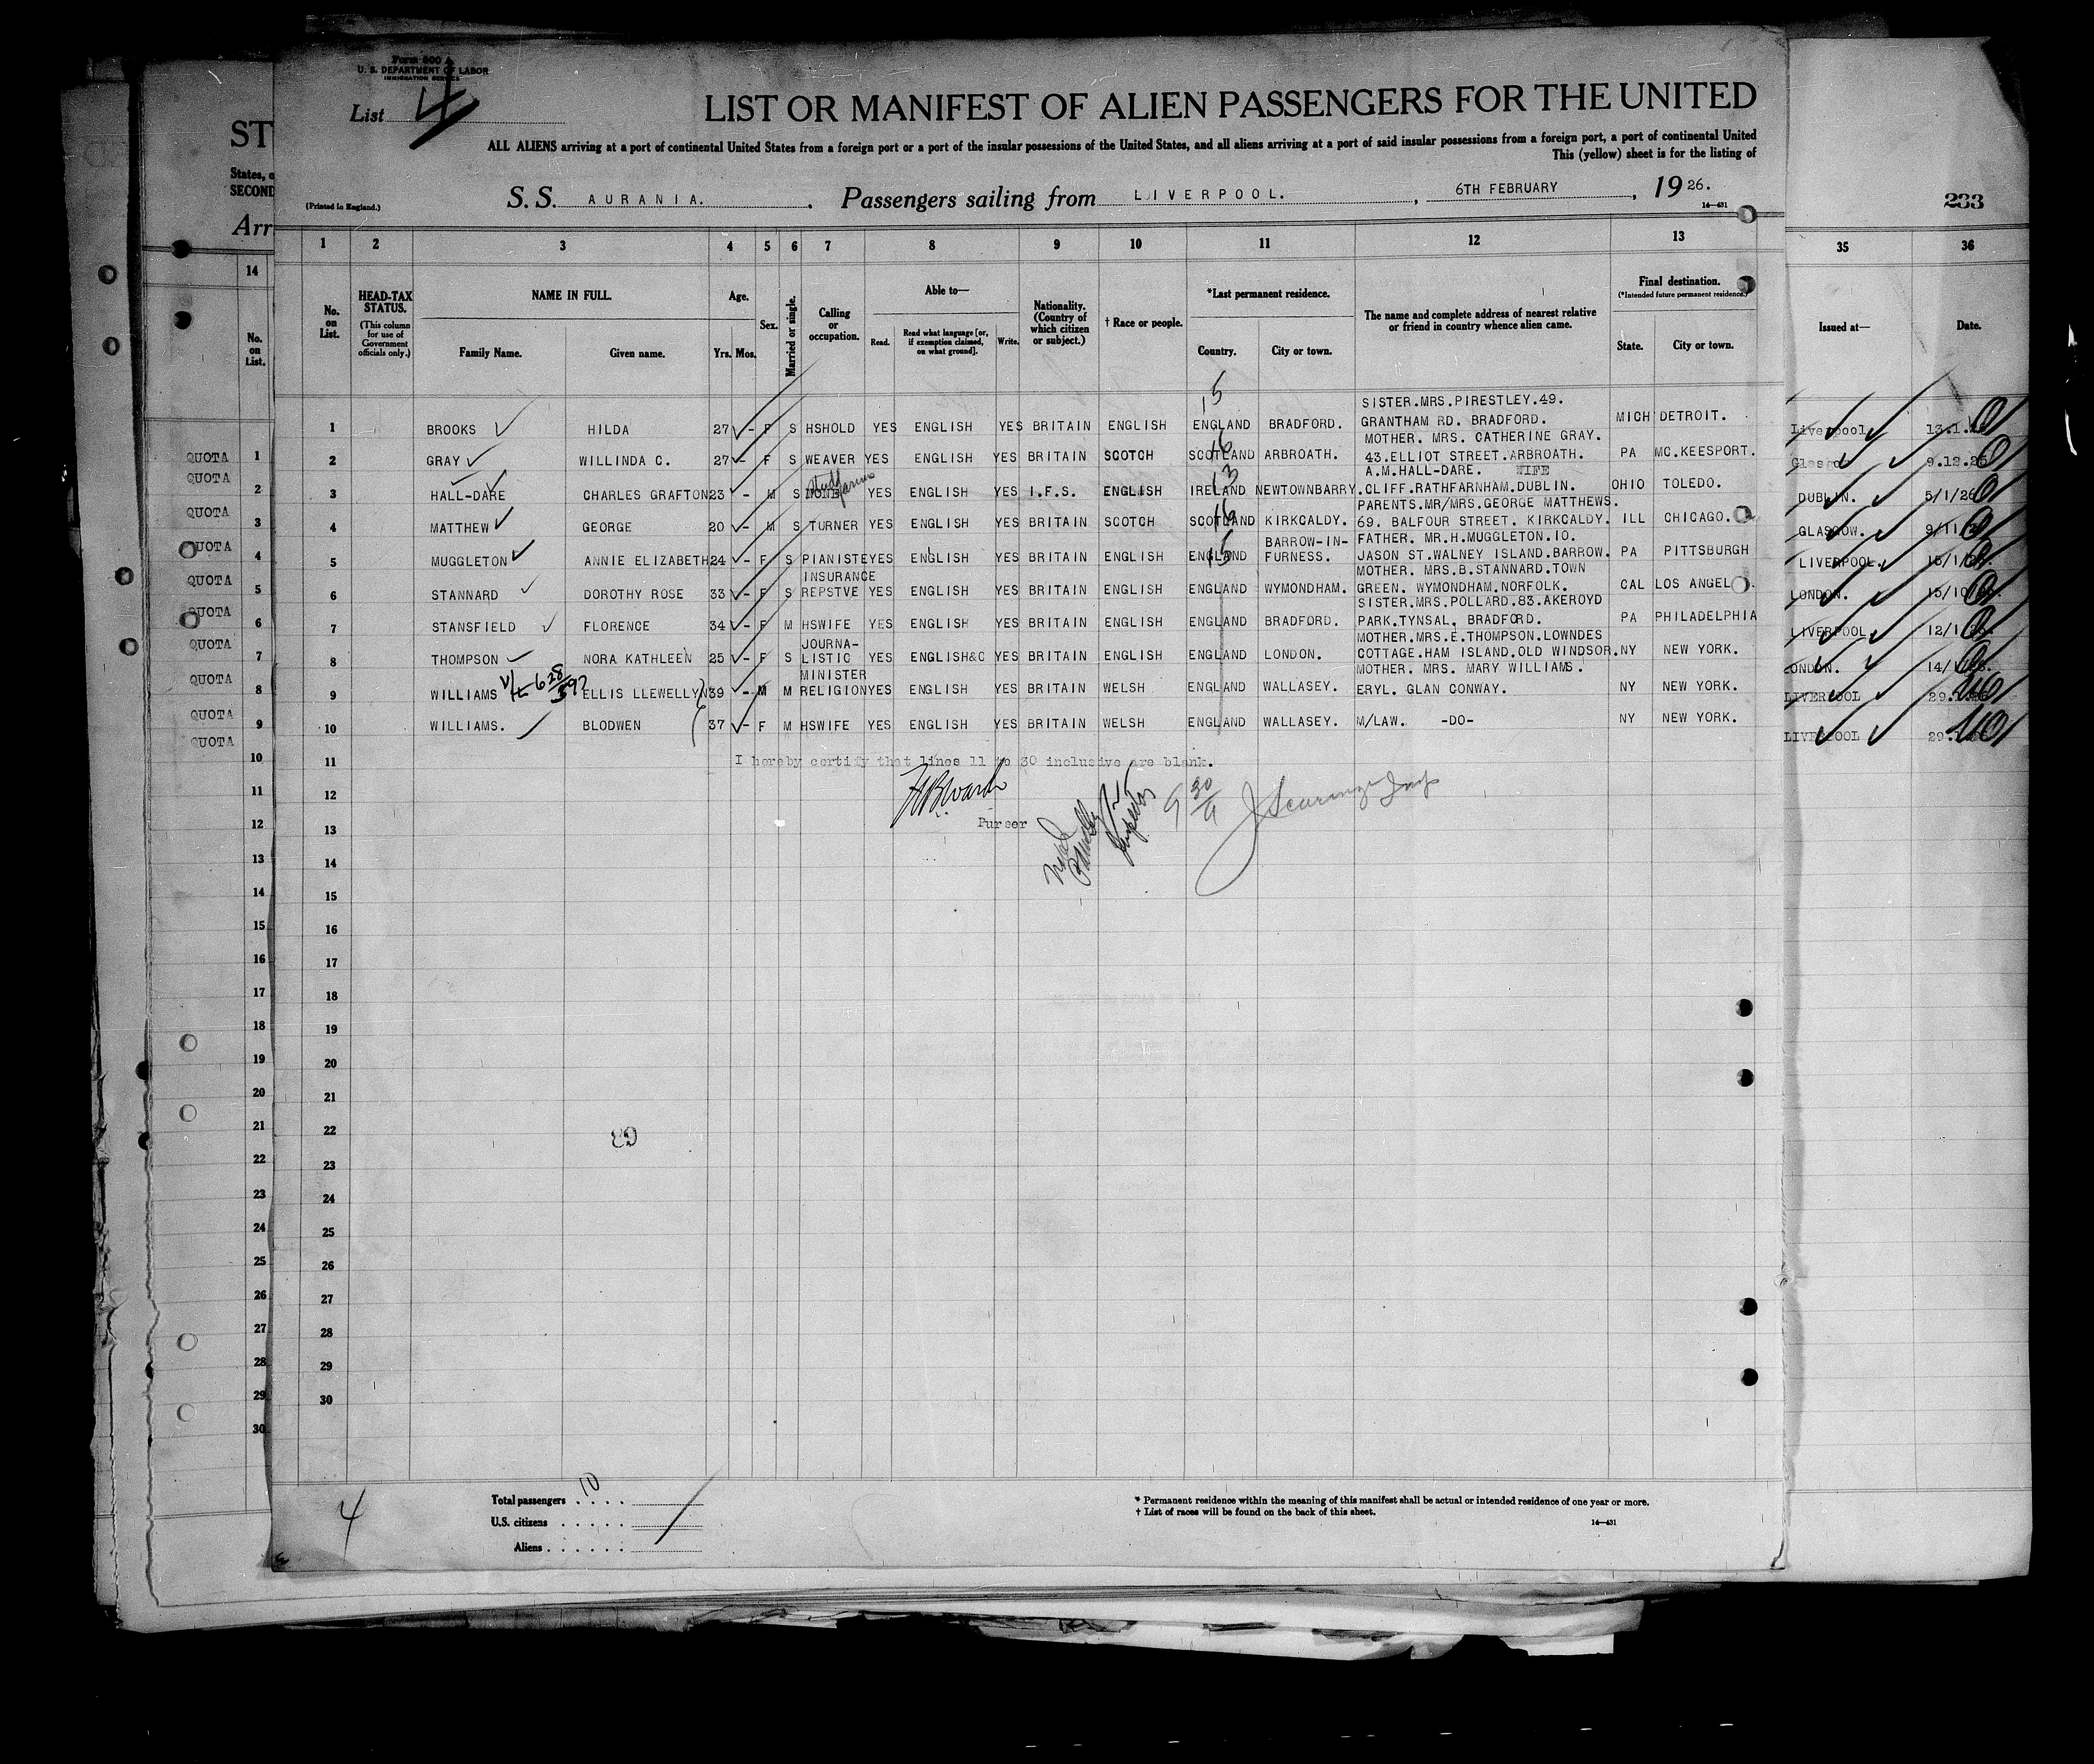 Form 500 A
U. S. DEPARTMENT OF LABOR
IMMIGRATION SERVICE
List 4
LIST OR MANIFEST OF ALIEN PASSENGERS FOR THE UNITED
ST
ALL ALIENS arriving at a port of continental United States from a foreign port or a port of the insular possessions of the United States, and all aliens arriving at a port of said insular possessions from a foreign port, a port of continental United
This (yellow) sheet is for the listing of
States, a
SECOND
Arr
(Printed in England.)
S. S. AURANIA. , Passengers sailing from LIVERPOOL. , 6TH FEBRUARY , 19 26.
14—431
233
1 2 3 4 5 6 7 8 9 10 11 12 13 35 36
14
No. on List.
HEAD-TAX STATUS.
(This column for use of Government officials only.)
NAME IN FULL.
Family Name. Given name.
Age.
Yrs. Mos.
Sex.
Married or single.
Calling or occupation.
Able to—
Read. Read what language [or, if exemption claimed, on what ground]. Write.
Nationality. (Country of which citizen or subject.)
† Race or people.
*Last permanent residence.
Country. City or town.
The name and complete address of nearest relative or friend in country whence alien came.
Final destination.
(*Intended future permanent residence.)
State. City or town.
Issued at— Date.
No. on List.
15
SISTER.MRS.PIRESTLEY.49.
1 BROOKS HILDA 27 - F S HSHOLD YES ENGLISH YES BRITAIN ENGLISH ENGLAND BRADFORD. GRANTHAM RD. BRADFORD. MICH DETROIT. Liverpool
16 MOTHER. MRS. CATHERINE GRAY.
2 GRAY WILLINDA C. 27 - F S WEAVER YES ENGLISH YES BRITAIN SCOTCH SCOTLAND ARBROATH. 43.ELLIOT STREET.ARBROATH. PA MC.KEESPORT. 9.12.25
13 A.M.HALL-DARE. WIFE
3 HALL-DARE CHARLES GRAFTON 23 - M S NONE YES ENGLISH YES I.F.S. ENGLISH IRELAND NEWTOWNBARRY. CLIFF.RATHFARNHAM.DUBLIN. OHIO TOLEDO. DUBLIN. 5/1/26
16 PARENTS.MR/MRS.GEORGE MATTHEWS.
4 MATTHEW GEORGE 20 - M S TURNER YES ENGLISH YES BRITAIN SCOTCH SCOTLAND KIRKCALDY. 69. BALFOUR STREET. KIRKCALDY. ILL CHICAGO. GLASGOW.
15 BARROW-IN- FATHER. MR.H.MUGGLETON.10.
5 MUGGLETON ANNIE ELIZABETH 24 - F S PIANISTE YES ENGLISH YES BRITAIN ENGLISH ENGLAND FURNESS. JASON ST.WALNEY ISLAND.BARROW. PA PITTSBURGH LIVERPOOL.
INSURANCE MOTHER. MRS.B.STANNARD.TOWN
6 STANNARD DOROTHY ROSE 33 - F S REPSTVE YES ENGLISH YES BRITAIN ENGLISH ENGLAND WYMONDHAM. GREEN. WYMONDHAM.NORFOLK. CAL LOS ANGEL LONDON.
SISTER.MRS.POLLARD.83.AKEROYD
7 STANSFIELD FLORENCE 34 - F M HSWIFE YES ENGLISH YES BRITAIN ENGLISH ENGLAND BRADFORD. PARK.TYNSAL. BRADFORD. PA PHILADELPHIA LIVERPOOL
JOURNA- MOTHER.MRS.E.THOMPSON.LOWNDES
8 THOMPSON NORA KATHLEEN 25 - F S LISTIC YES ENGLISH&C YES BRITAIN ENGLISH ENGLAND LONDON. COTTAGE.HAM ISLAND.OLD WINDSOR. NY NEW YORK. ONDON.
MINISTER MOTHER. MRS. MARY WILLIAMS.
9 WILLIAMS ELLIS LLEWELLYN 39 - M M RELIGION YES ENGLISH YES BRITAIN WELSH ENGLAND WALLASEY. ERYL. GLAN CONWAY. NY NEW YORK. LIVERPOOL
10 WILLIAMS. BLODWEN 37 - F M HSWIFE YES ENGLISH YES BRITAIN WELSH ENGLAND WALLASEY. M/LAW. -DO- NY NEW YORK. LIVERPOOL
QUOTA 1
QUOTA 2
QUOTA 3
QUOTA 4
QUOTA 5
QUOTA 6
QUOTA 7
QUOTA 8
QUOTA 9
QUOTA
10 11 I hereby certify that lines 11 to 30 inclusive are blank.
11 12
Purser
12 13
13 14
14 15
15 16
16 17
17 18
18 19
19 20
20 21
21 22
22 23
23 24
24 25
25 26
26 27
27 28
28 29
29 30
30
4
Total passengers . . . . 10
U.S. citizens . . . . .
Aliens . . . . . .
* Permanent residence within the meaning of this manifest shall be actual or intended residence of one year or more.
† List of races will be found on the back of this sheet.
14—431